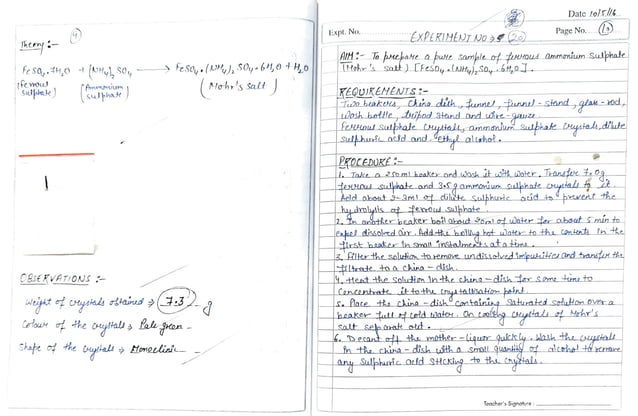 Theory :-
FeSO4.7H2O + (NH4)2SO4 → FeSO4.(NH4)2SO4.6H2O + H2O
(Ferrous Sulphate) (Ammonium Sulphate) (Mohr's salt)
OBSERVATIONS :-
Weight of crystals obtained → 7.3 g
Colour of the crystals → Pale green
Shape of the crystals → Monoclinic
Date 10/5/16
Expt. No. EXPERIMENT NO → Page No.
AIM:- To prepare a pure sample of ferrous ammonium sulphate
(Mohr's salt) [FeSO4.(NH4)2SO4.6H2O].
REQUIREMENTS:-
Two beakers, China dish, funnel, funnel-stand, glass-rod,
wash bottle, tripod stand and wire-gauze.
Ferrous sulphate crystals, ammonium sulphate crystals, dilute
sulphuric acid and ethyl alcohol.
PROCEDURE:-
1. Take a 250ml beaker and wash it with water. Transfer 7.0g
ferrous sulphate and 3.5g ammonium sulphate crystals to it.
Add about 2-3ml of dilute sulphuric acid to prevent the
hydrolysis of ferrous sulphate.
2. In another beaker boil about 20ml of water for about 5 min to
expel dissolved air. Add the boiling hot water to the contents in the
first beaker in small instalments at a time.
3. Filter the solution to remove undissolved impurities and transfer the
filtrate to a china-dish.
4. Heat the solution in the china-dish for some time to
concentrate it to the crystallisation point.
5. Place the china-dish containing saturated solution over a
beaker full of cold water. On cooling crystals of Mohr's
salt separate out.
6. Decant off the mother-liquor quickly. Wash the crystals
in the china-dish with a small quantity of alcohol to remove
any sulphuric acid sticking to the crystals.
Teacher's Signature :